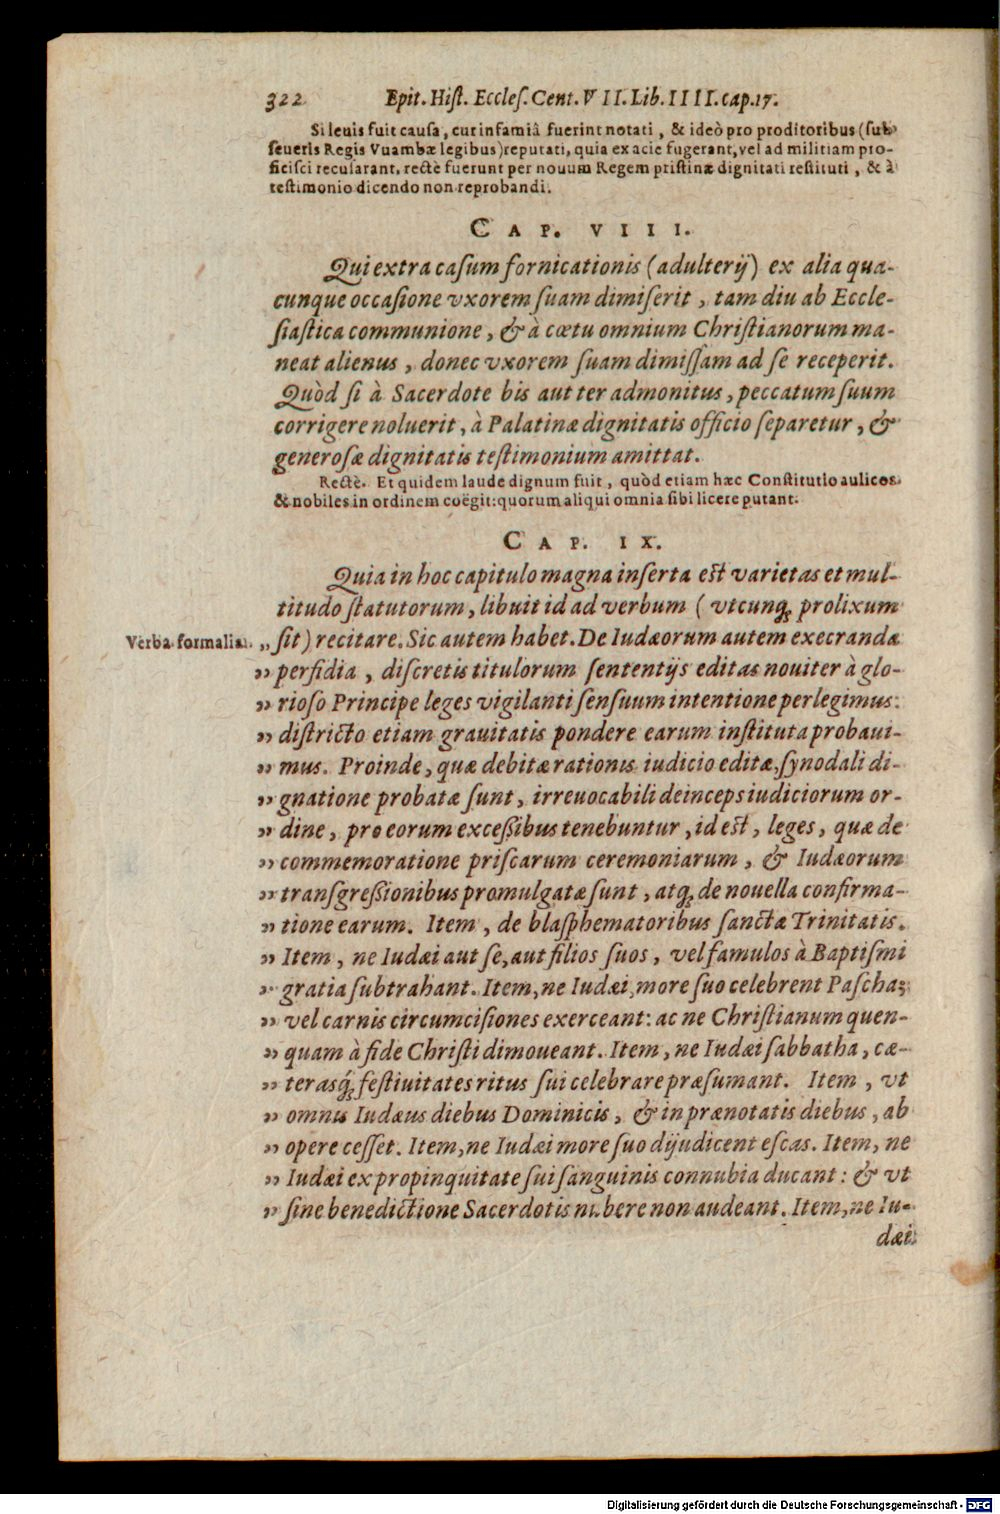 322 Epit. Hiſt. Eccleſ. Cent. VII. Lib. IIII. cap. 17.
Si leuis fuit cauſa, cur infamiâ fuerint notati, & ideò pro proditoribus (ſub
ſeueris Regis Vuambæ legibus) reputati, quia ex acie fugerant, vel ad militiam pro-
ficiſci recuſarant, rectè fuerunt per nouum Regem priſtinæ dignitati reſtituti, & à
teſtimonio dicendo non reprobandi.
CAP. VIII.
Qui extra caſum fornicationis (adulterij) ex alia qua-
cunque occaſione vxorem ſuam dimiſerit, tam diu ab Eccle-
ſiaſtica communione, & à cœtu omnium Chriſtianorum ma-
neat alienus, donec vxorem ſuam dimiſſam ad ſe receperit.
Quòd ſi à Sacerdote bis aut ter admonitus, peccatum ſuum
corrigere noluerit, à Palatinæ dignitatis officio ſeparetur, &
generoſæ dignitatis teſtimonium amittat.
Rectè. Et quidem laude dignum fuit, quòd etiam hæc Conſtitutio aulicos
& nobiles in ordinem coëgit: quorum aliqui omnia ſibi licere putant.
CAP. IX.
Quia in hoc capitulo magna inſerta eſt varietas et mul-
titudo ſtatutorum, libuit id ad verbum (vtcunq; prolixum
Verba formalia. „ ſit) recitare. Sic autem habet. De Iudæorum autem execranda
„ perfidia, diſcretis titulorum ſententijs editas nouiter à glo-
„ rioſo Principe leges vigilanti ſenſuum intentione perlegimus:
„ diſtricto etiam grauitatis pondere earum inſtituta probaui-
„ mus. Proinde, quæ debitæ rationis iudicio editæ, ſynodali di-
„ gnatione probatæ ſunt, irreuocabili deinceps iudiciorum or-
„ dine, pro eorum exceſſibus tenebuntur, id eſt, leges, quæ de
„ commemoratione priſcarum ceremoniarum, & Iudæorum
„ transgreſſionibus promulgatæ ſunt, atq; de nouella confirma-
„ tione earum. Item, de blaſphematoribus ſanctæ Trinitatis.
„ Item, ne Iudæi aut ſe, aut filios ſuos, vel famulos à Baptiſmi
„ gratia ſubtrahant. Item, ne Iudæi, more ſuo celebrent Paſcha;
„ vel carnis circumciſiones exerceant: ac ne Chriſtianum quen-
„ quam à fide Chriſti dimoueant. Item, ne Iudæi ſabbatha, cæ-
„ terasq́; feſtiuitates ritus ſui celebrare præſumant. Item, vt
„ omnis Iudæus diebus Dominicis, & in prænotatis diebus, ab
„ opere ceſſet. Item, ne Iudæi more ſuo dijudicent eſcas. Item, ne
„ Iudæi ex propinquitate ſui ſanguinis connubia ducant: & vt
„ ſine benedictione Sacerdotis nubere non audeant. Item, ne Iu-
dæi
Digitalisierung gefördert durch die Deutsche Forschungsgemeinschaft - DFG